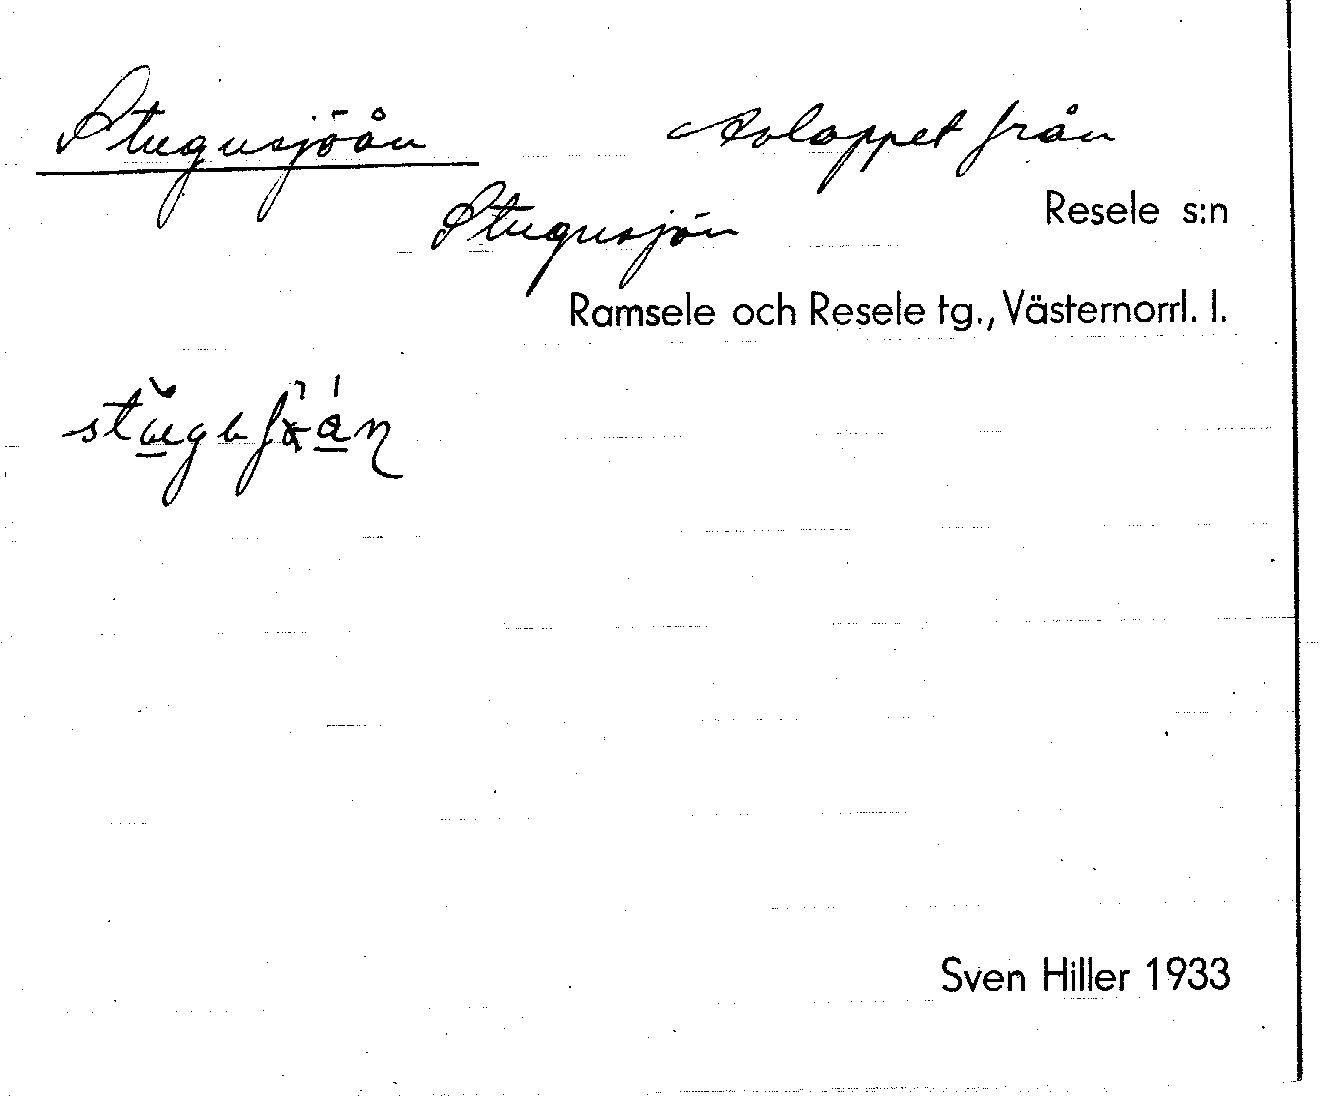 Stugusjöån Avloppet från
Stugusjön Resele s:n
Ramsele och Resele tg., Västernorrl. l.
Sven Hiller 1933